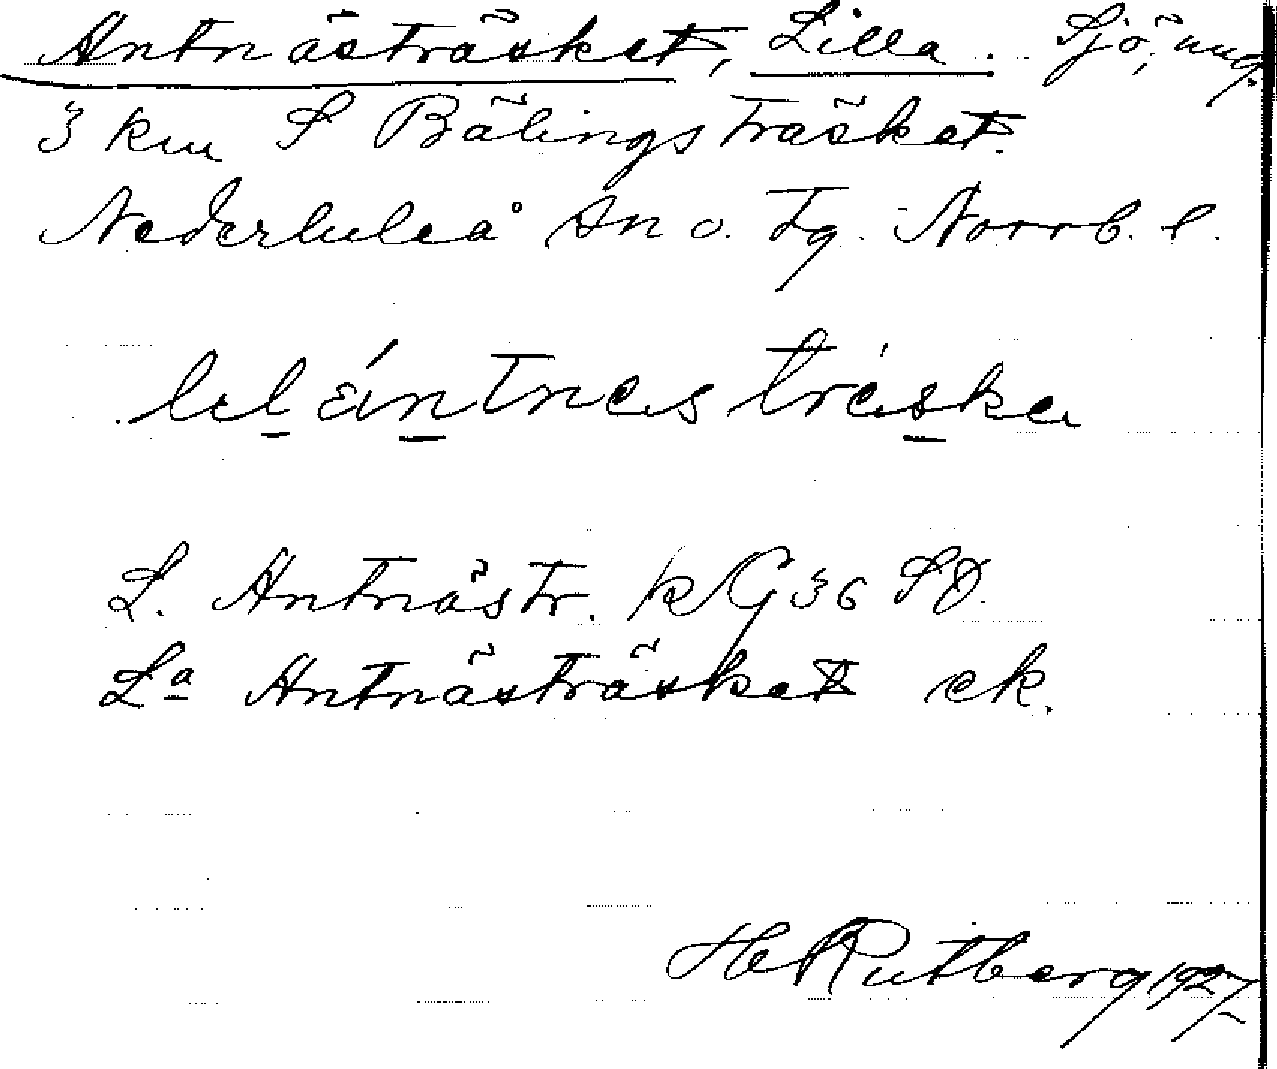 Antnästräsket, Lilla. Sjö, ung.
3 km S Bälingsträsket.
Nederluleå sn o. tg. Norrb. l.
L. Antnästr. kG36 SO.
La Antnästräsket ek.
H Rutberg 1927